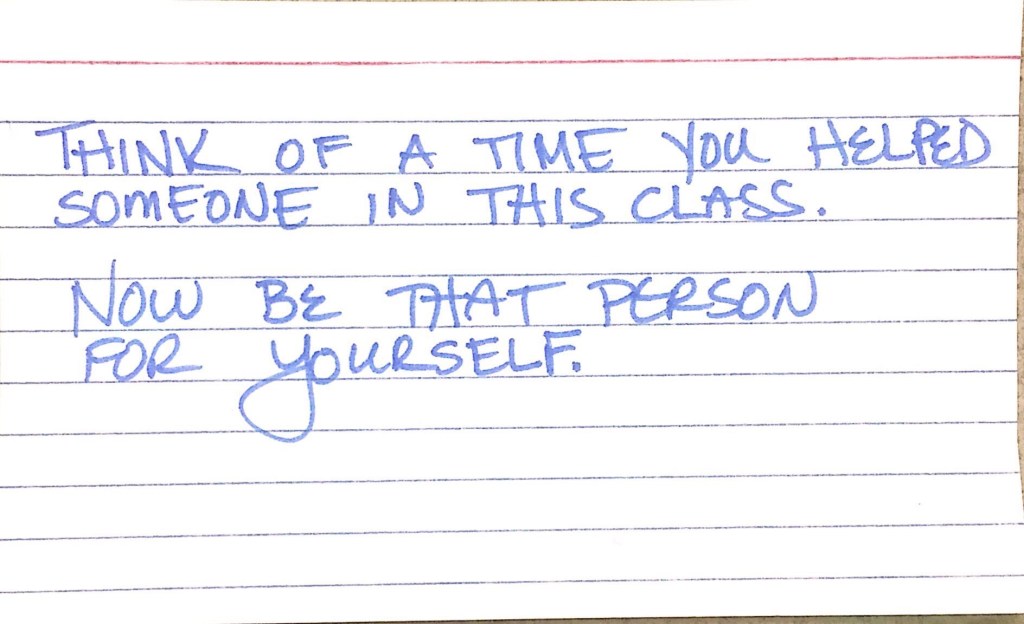 THINK OF A TIME YOU HELPED
SOMEONE IN THIS CLASS.
NOW BE THAT PERSON
FOR YOURSELF.